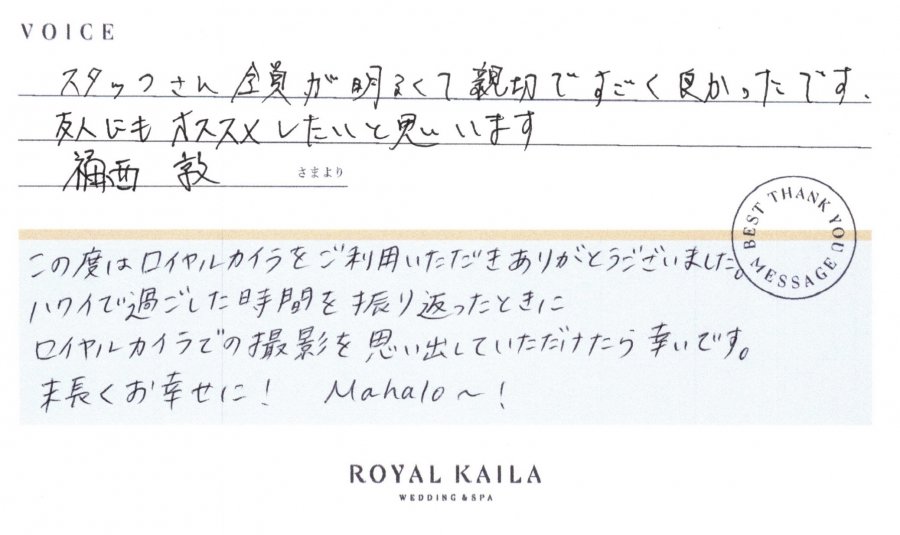 VOICE
スタッフさん 全員が明るくて親切ですごく良かったです.
友人にもオススメしたいと思います
福西 敦 さまより
BEST THANK YOU MESSAGE
この度はロイヤルカイラをご利用いただきありがとうございました。
ハワイで過ごした時間を振り返ったときに
ロイヤルカイラでの撮影を思い出していただけたら幸いです。
末長くお幸せに! Mahalo〜!
ROYAL KAILA
WEDDING & SPA